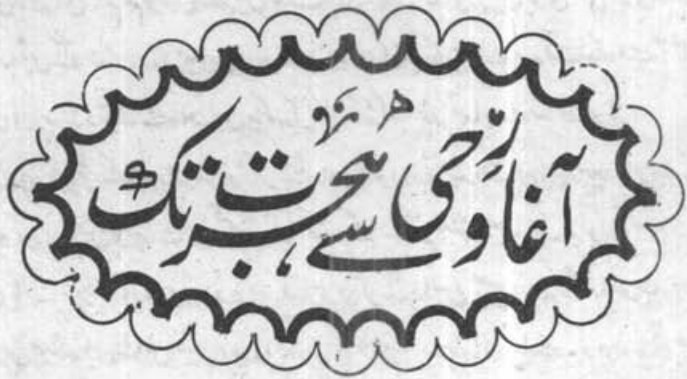 آغازِ وحی سے ہجرت تک